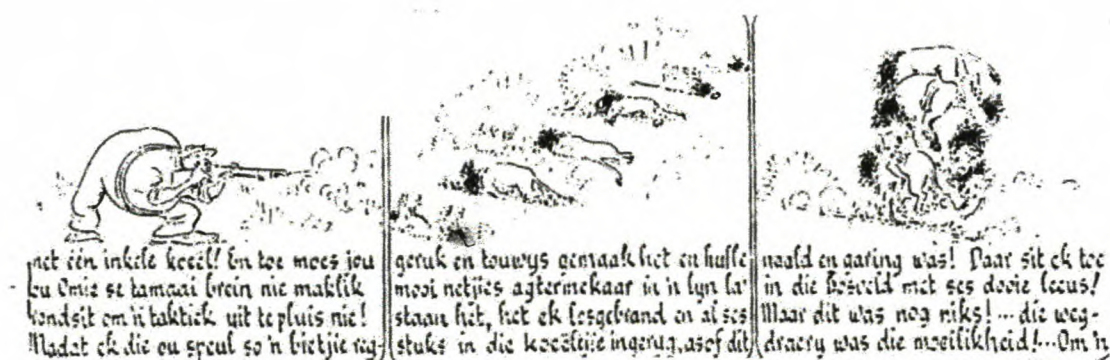 met één inkele koeël! En toe moes jou
ou Omie se tamaai brein nie maklik
rondsit om 'n taktiek uit te pluis nie!
Nadat ek die ou speul so 'n bietjie reg-
geruk en touwys gemaak het en hulle
mooi netjies agtermekaar in 'n lyn la
staan het, het ek losgebrand en al ses
stuks in die koeëleitjie ingeryg, asof dit
naald en garing was! Daar sit ek toe
in die Bosveld met ses dooie leeus!
Maar dit was nog niks!... die weg-
draery was die moeilikheid!... Om 'n